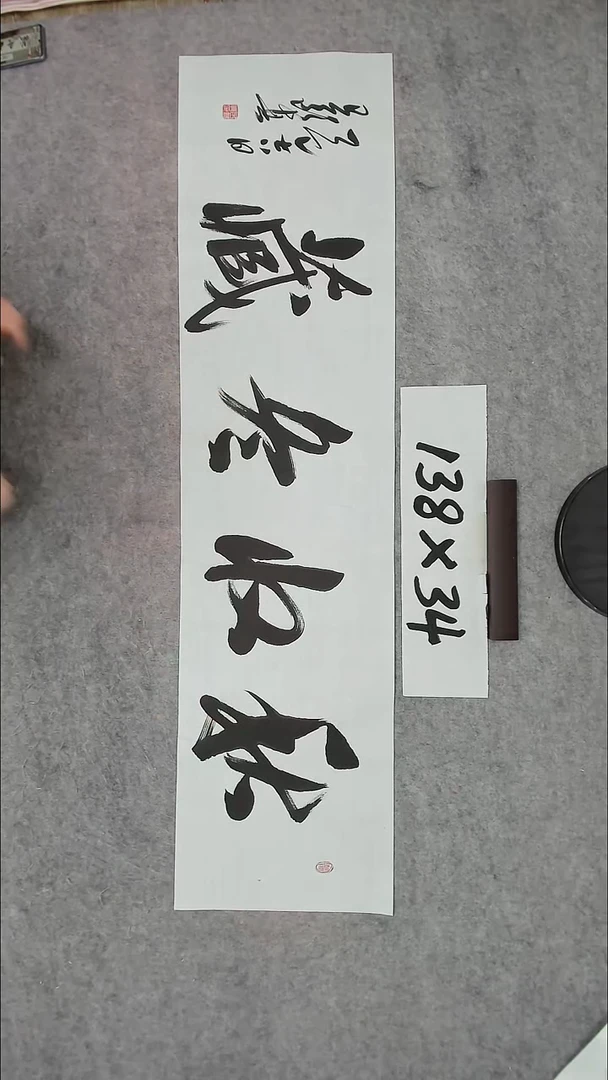 秋收冬藏
138×34